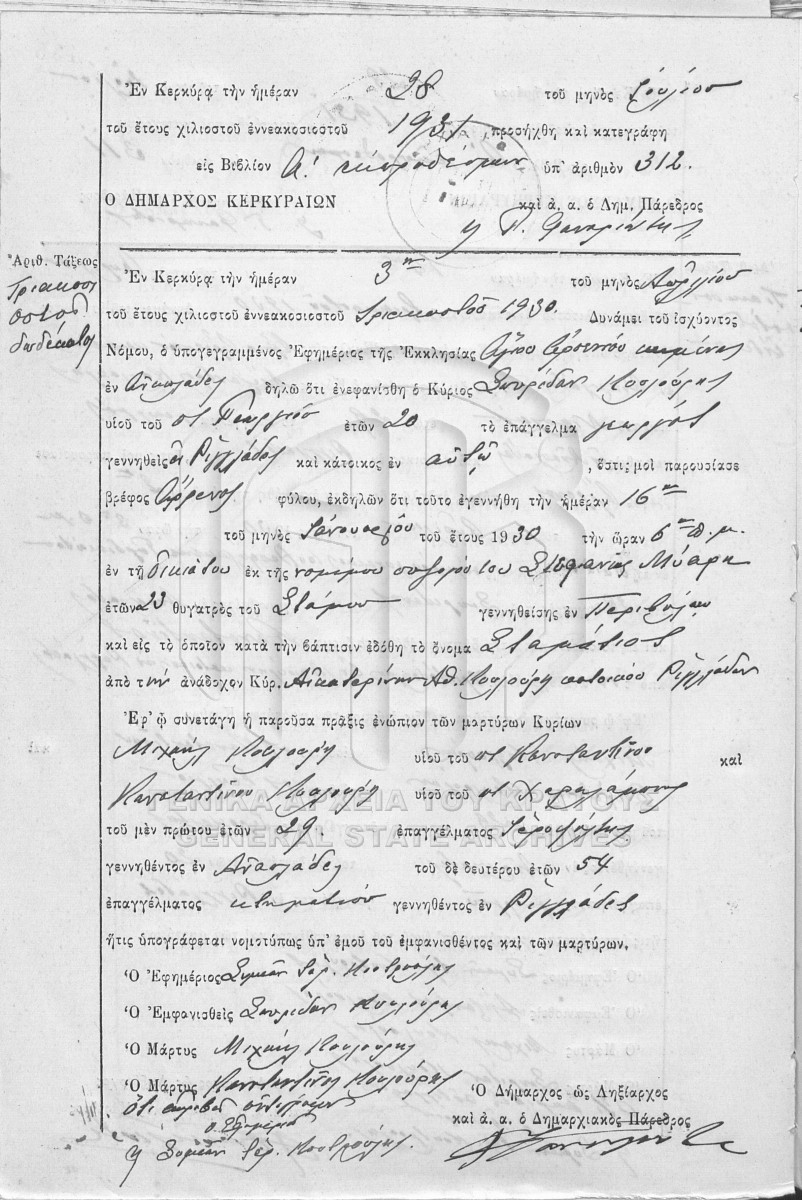 Ἐν Κερκύρᾳ τὴν ἡμέραν 28 τοῦ μηνὸς Ἰουλίου
τοῦ ἔτους χιλιοστοῦ ἐννεακοσιοστοῦ 1931 , προσήχθη καὶ κατεγράφη
εἰς Βιβλίον Α! ὑπ' ἀριθμὸν 312.
Ο ΔΗΜΑΡΧΟΣ ΚΕΡΚΥΡΑΙΩΝ καὶ ἀ. α. ὁ Δημ. Πάρεδρος
Ἀριθ. Τάξεως
Τριακοσι
οστος
δωδέκατος
Ἐν Κερκύρᾳ τὴν ἡμέραν 3ην τοῦ μηνὸς Ἀπριλίου
τοῦ ἔτους χιλιοστοῦ ἐννεακοσιοστοῦ τριακοστοῦ 1930. Δυνάμει τοῦ ἰσχύοντος
Νόμου, ὁ ὑπογεγραμμένος Ἐφημέριος τῆς Ἐκκλησίας Ἁγίου Ἀρσενίου
ἐν δηλῶ ὅτι ἐνεφανίσθη ὁ Κύριος Σπυρίδων Κουλούρης
υἱοῦ τοῦ Γεωργίου ἐτῶν 20 τὸ ἐπάγγελμα γεωργός
γεννηθεὶς ἐν Ῥιγγλάδες καὶ κάτοικος ἐν αὐτῷ , ὅστις μοὶ παρουσίασε
βρέφος ἄρρενος φύλου, ἐκδηλῶν ὅτι τοῦτο ἐγεννήθη τὴν ἡμέραν 16ην
τοῦ μηνὸς Ἰανουαρίου τοῦ ἔτους 1930 τὴν ὥραν 6ην π.μ.
ἐν τῇ οἰκίᾳ του ἐκ τῆς νομίμου συζύγου του Στεφανίας Μύαρη
ἐτῶν 23 θυγατρὸς τοῦ Στάμου γεννηθείσης ἐν Περιβόλιον
καὶ εἰς τὸ ὁποῖον κατὰ τὴν βάπτισιν ἐδόθη τὸ ὄνομα Σταμάτιος
ἀπὸ την ἀνάδοχον Κύρ. Αἰκατερίνην Αθ. Κουλούρη κατοίκου Ῥιγγλάδων
Ἐφ' ᾧ συνετάγη ἡ παροῦσα πρᾶξις ἐνώπιον τῶν μαρτύρων Κυρίων
Μιχαήλ Κουλούρη υἱοῦ τοῦ Κωνσταντίνου καὶ
Κωνσταντίνου Κουλούρη υἱοῦ τοῦ Χαραλάμπους
ΓΕΝΙΚΑ ΑΡΧΕΙΑ ΤΟΥ ΚΡΑΤΟΥΣ
τοῦ μὲν πρώτου ἐτῶν 29. ἐπαγγέλματος Ἱεροψάλτης
GENERAL STATE ARCHIVES
γεννηθέντος ἐν τοῦ δὲ δευτέρου ἐτῶν 54
ἐπαγγέλματος κτηματίου γεννηθέντος ἐν Ῥιγγλάδες
ἥτις ὑπογράφεται νομοτύπως ὑπ' ἐμοῦ τοῦ ἐμφανισθέντος καὶ τῶν μαρτύρων.
Ὁ Ἐφημέριος Συμεὼν Ἱερ.
Ὁ Ἐμφανισθεὶς Σπυρίδων Κουλούρης
Ὁ Μάρτυς Μιχαήλ Κουλούρης
Ὁ Μάρτυς Κωνσταντῖνος Κουλούρης
Ὅτι ἀκριβὲς ἀντίγραφον
ὁ Ἐφημέριος
Συμεὼν Ἱερ.
Ὁ Δήμαρχος ὡς Ληξίαρχος
καὶ ἀ. α. ὁ Δημαρχιακὸς Πάρεδρος